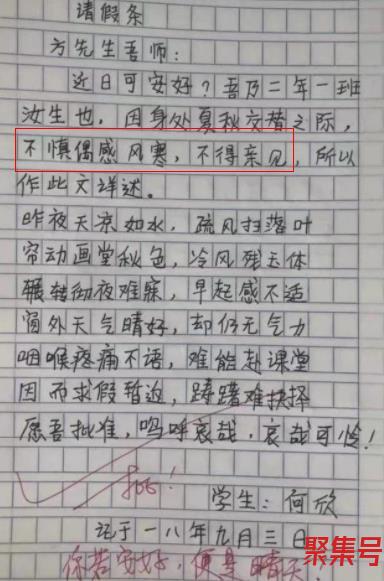 请假条
方先生吾师:
近日可安好?吾乃二年一班
汝生也,因身处夏秋交替之际,
不慎偶感风寒,不得亲见,所以
作此文详述。
昨夜天凉如水,疏风扫落叶
帘动画堂秋色,冷风残玉体
辗转彻夜难寐,早起感不适
窗外天气晴好,却仍无气力
咽喉疼痛不语,难能赴课堂
因而求假暂返,踌躇难抉择
愿吾批准,呜呼哀哉,哀哉可怜!
批!
学生:何欣
记于一八年九月三日
你若安好,便是晴天!
聚集号